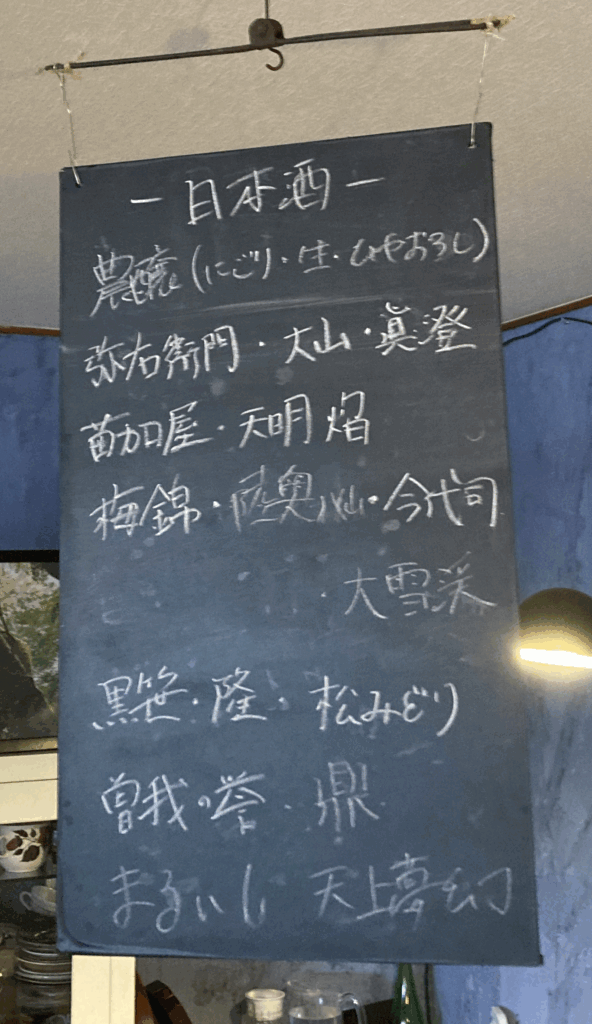 －日本酒－
農醸(にごり・生・ひやおろし)
弥右衛門・大山・眞澄
苗加屋・天明 焔
梅錦・陸奥八仙・今代司
・大雪渓
黒笹・隆・松みどり
曽我の誉・鼎
まるいし 天上夢幻